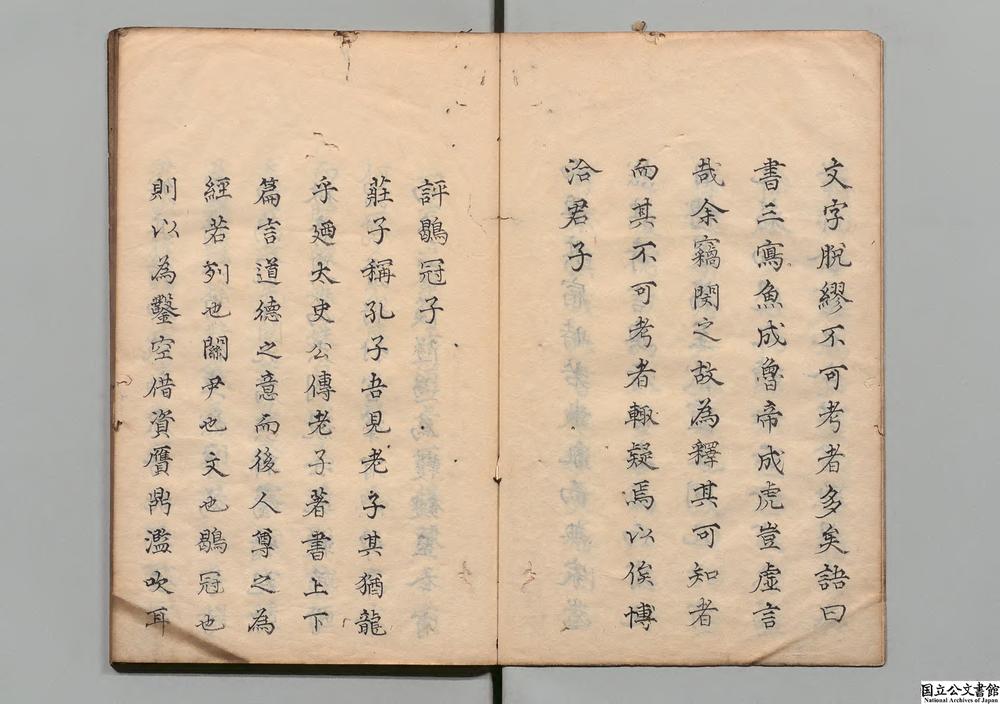 文字脫繆不可考者多矣語曰
書三寫魚成魯帝成虎豈虛言
哉余竊閔之故為釋其可知者
而其不可考者輙疑焉以俟博
洽君子
評鶡冠子
莊子稱孔子吾見老子其猶龍
乎廼太史公傳老子著書上下
篇言道德之意而後人尊之為
經若列也關尹也文也鶡冠也
則以為鑿空借資贗鼎濫吹耳
国立公文書館
National Archives of Japan